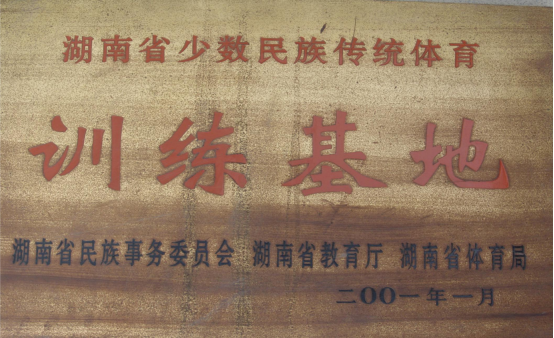 湖南省少数民族传统体育
训练基地
湖南省民族事务委员会 湖南省教育厅 湖南省体育局
二〇〇一年一月